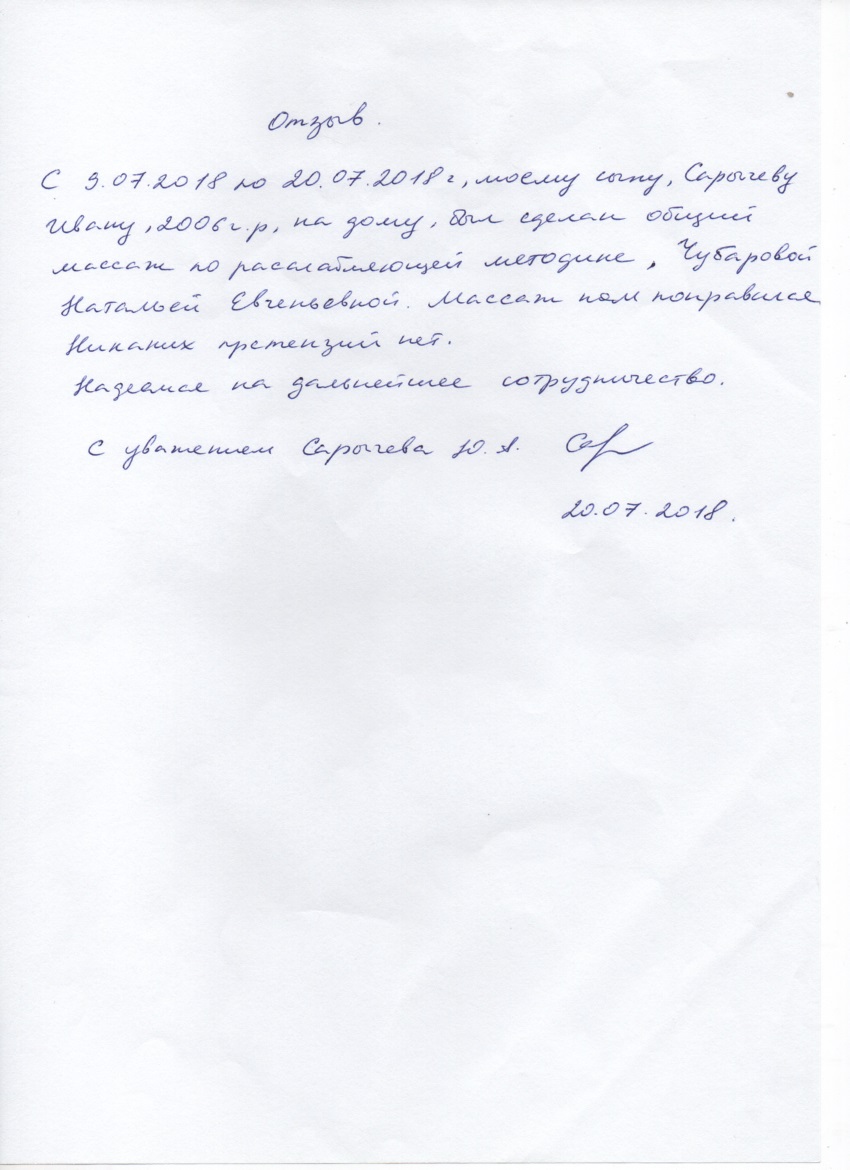 Отзыв.
С 9.07.2018 по 20.07.2018 г, моему сыну, Сарычеву
Ивану, 2006 г.р, на дому, был сделан общий
массаж по расслабляющей методике, Чубаровой
Натальей Евгеньевной. Массаж нам понравился
Никаких претензий нет.
Надеемся на дальнейшее сотрудничество.
С уважением Сарычева Ю.А.
20.07.2018.